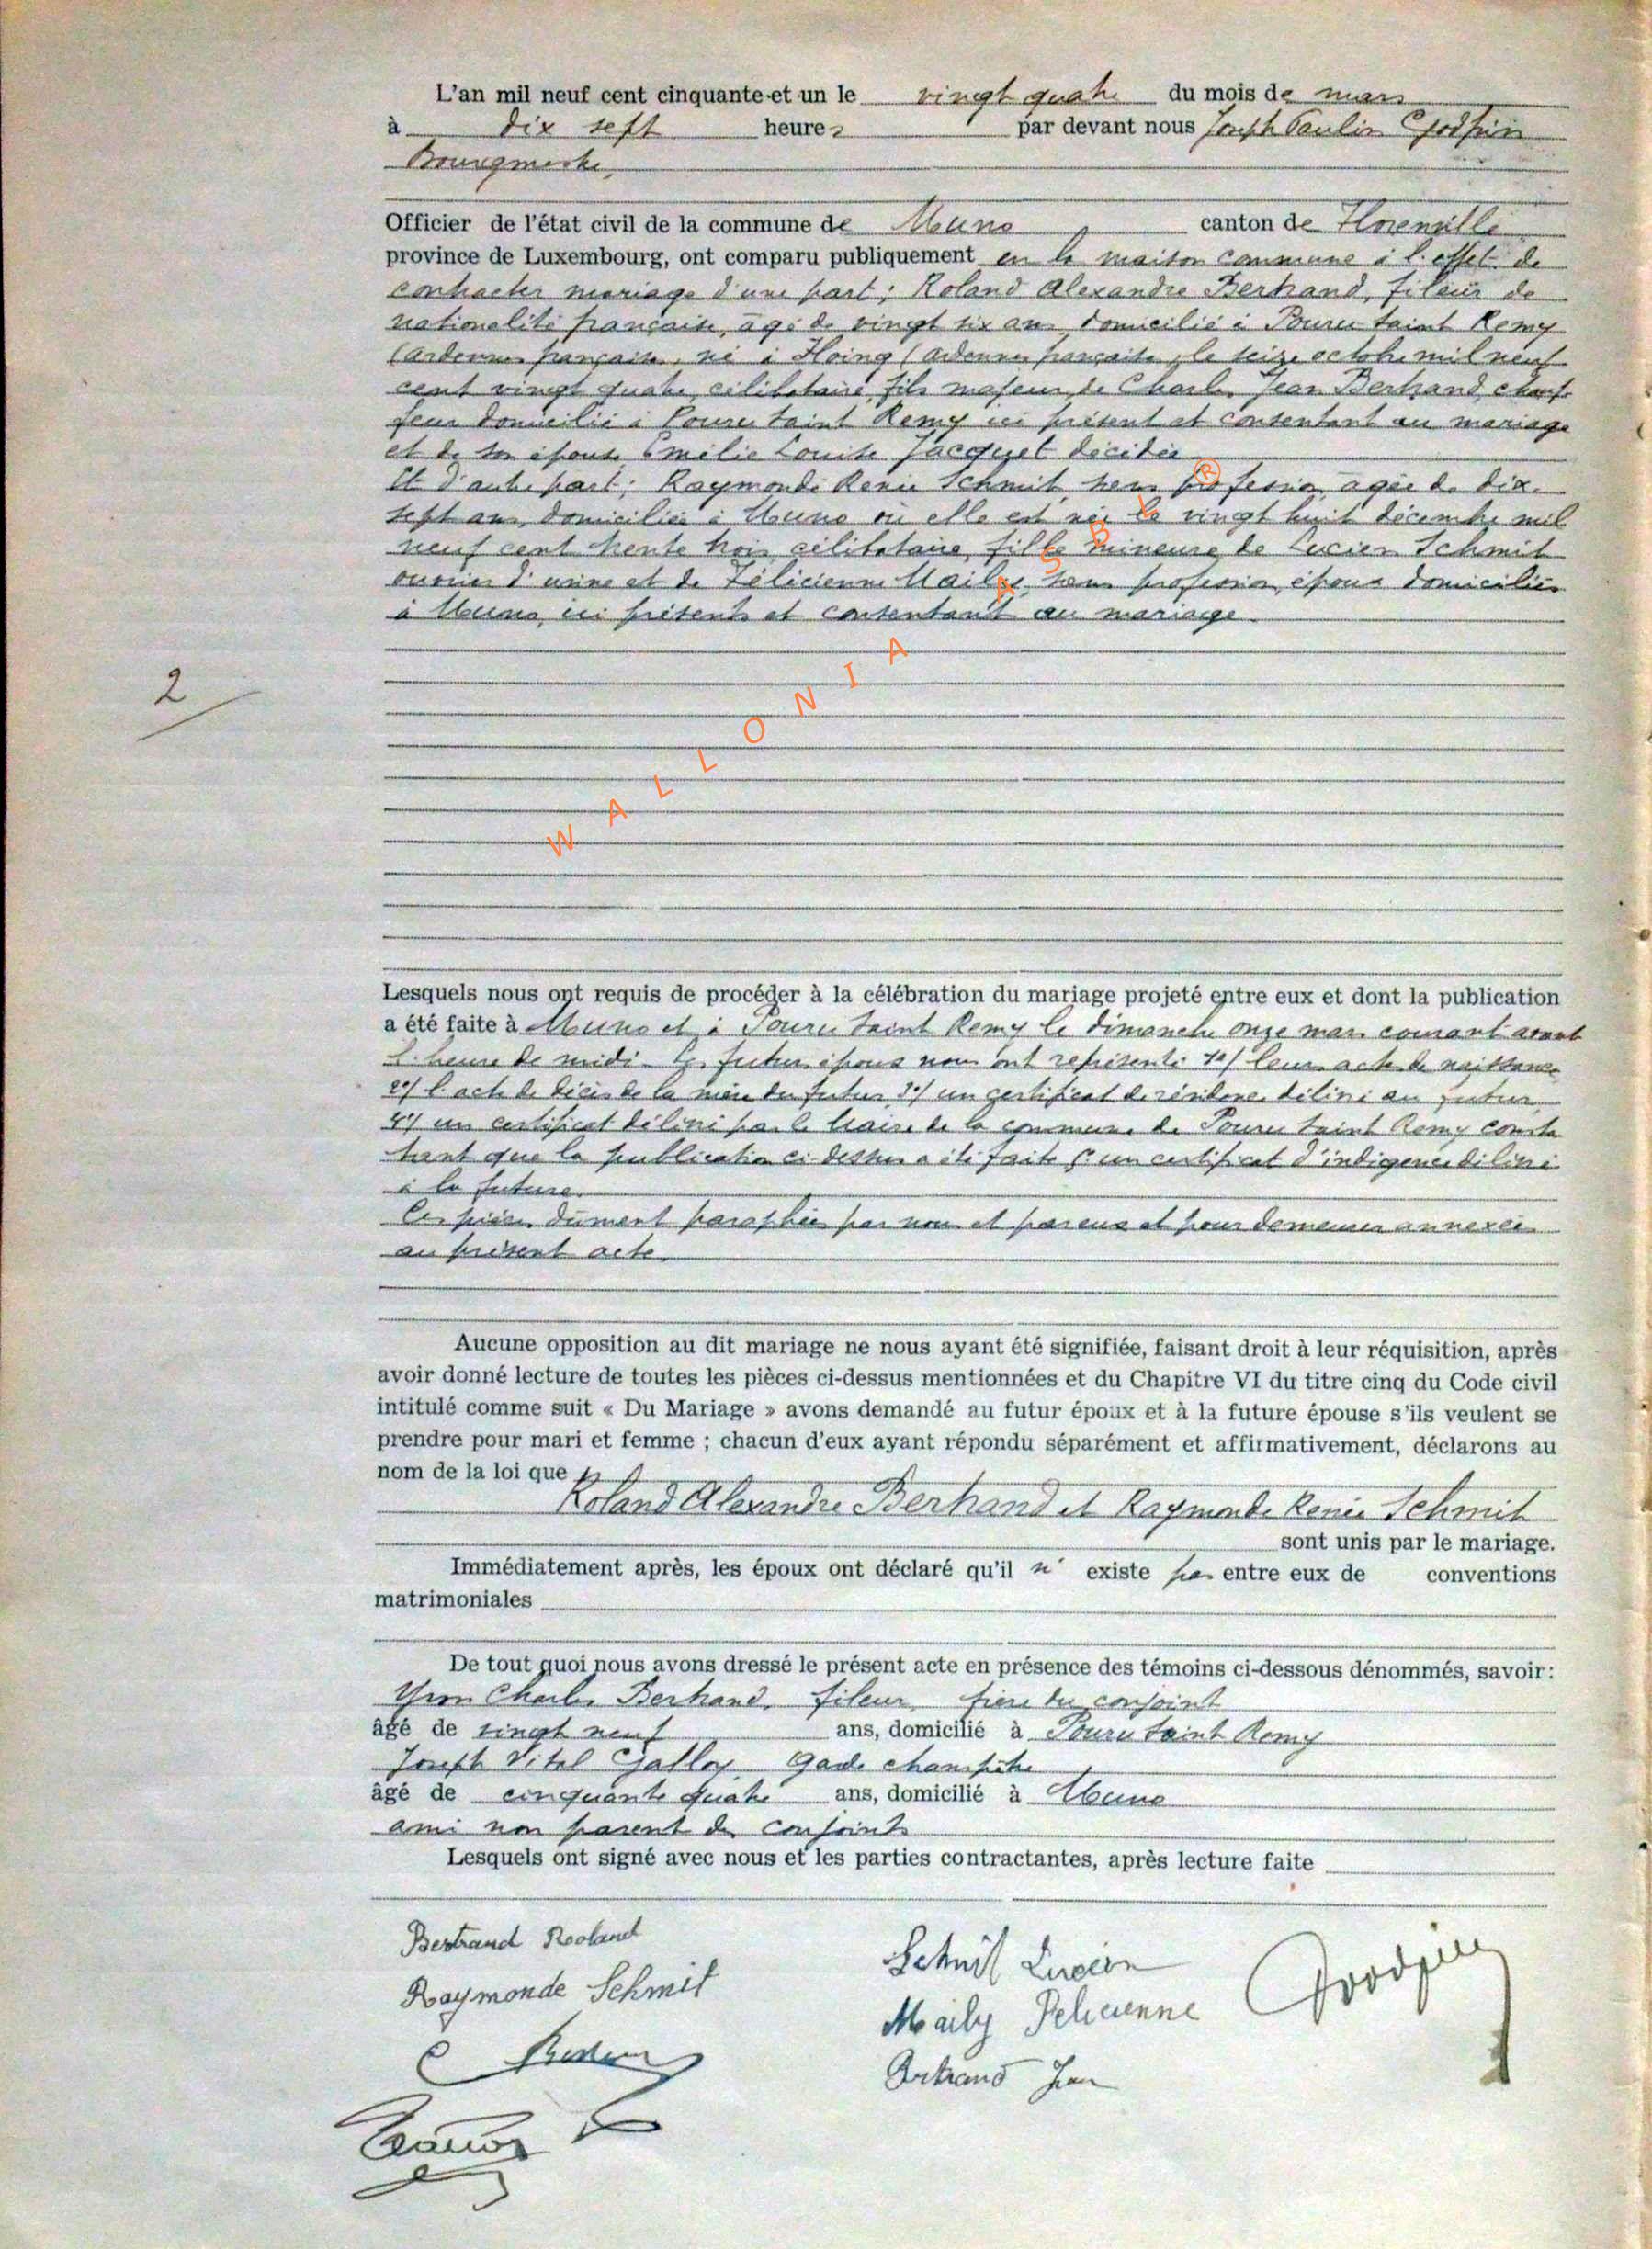 L'an mil neuf cent cinquante-et un le vingt quatre du mois de mars
à dix sept heures par devant nous Joseph Paulin Godfrin
Bourgmestre
Officier de l'état civil de la commune de Muno canton de Florenville
province de Luxembourg, ont comparu publiquement en la maison commune à l'effet de
contracter mariage d'une part; Roland Alexandre Bertrand, fileur de
nationalité française, agé de vingt six ans, domicilié à Pouru Saint Remy
(Ardennes française, né à (Ardennes française, le seize octobre mil neuf
cent vingt quatre, célibataire, fils majeur de Charles Jean Bertrand, chauf-
feur domicilié à Pouru Saint Remy ici présent et consentant au mariage
et de son épouse Emélie Louise Jacquet décédée
Et d'autre part; Raymonde Renée Schmit, sans profession, agée de dix-
sept ans, domiciliée à Muno où elle est née le vingt huit décembre mil
neuf cent trente trois, célibataire, fille mineure de Lucien Schmit
ouvrier d'usine et de Félicienne Maily, sans profession, époux domiciliés
à Muno, ici présents et consentant au mariage.
2
R
W A L L O N I A
Lesquels nous ont requis de procéder à la célébration du mariage projeté entre eux et dont la publication
a été faite à Muno et à Pouru Saint Remy le dimanche onze mars courant avant
l'heure de midi. Les futurs époux nous ont représenté 1°/ leurs actes de naissance
2°/ l'acte de décès de la mère du futur 3°/ un certificat de résidence délivré au futur
4°/ un certificat délivré par le Maire de la commune de Pouru Saint Remy consta
tant que la publication ci dessus a été faite 5° un certificat d'indigence délivré
à la future.
Ces pièces dument paraphées par nous et par eux et pour demeurer annexées
au présent acte.
Aucune opposition au dit mariage ne nous ayant été signifiée, faisant droit à leur réquisition, après
avoir donné lecture de toutes les pièces ci-dessus mentionnées et du Chapitre VI du titre cinq du Code civil
intitulé comme suit « Du Mariage » avons demandé au futur époux et à la future épouse s'ils veulent se
prendre pour mari et femme ; chacun d'eux ayant répondu séparément et affirmativement, déclarons au
nom de la loi que
Roland Alexandre Bertrand et Raymonde Renée Schmit
sont unis par le mariage.
Immédiatement après, les époux ont déclaré qu'il n' existe pas entre eux de conventions
matrimoniales
De tout quoi nous avons dressé le présent acte en présence des témoins ci-dessous dénommés, savoir :
Charles Bertrand, fileur, frère du conjoint
âgé de vingt neuf ans, domicilié à Pouru Saint Remy
Joseph Vital Garde champêtre
âgé de cinquante quatre ans, domicilié à Muno
ami non parent des conjoints
Lesquels ont signé avec nous et les parties contractantes, après lecture faite
Bertrand Rooland
Schmit Lucien
Godfrin
Raymonde Schmit
Maily Felicienne
Bertrand Jean